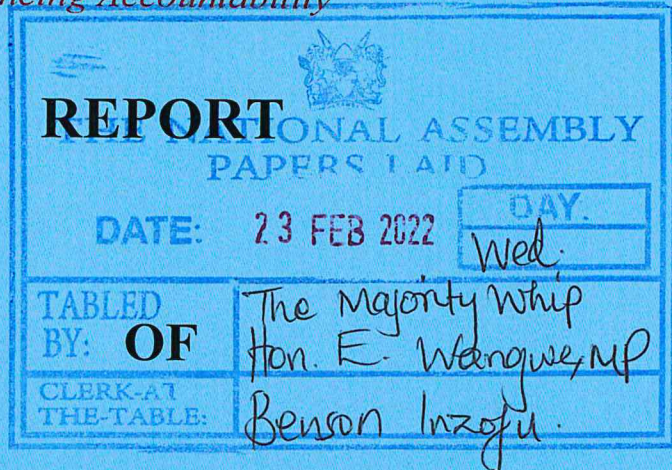 ncing Accountability
REPORT
THE NATIONAL ASSEMBLY
PAPERS LAID
DATE: 23 FEB 2022 DAY.
Wed.
TABLED BY: The Majority Whip
Hon. E. Wangwe, MP
OF
CLERK-AT THE-TABLE: Benson Inzofu.